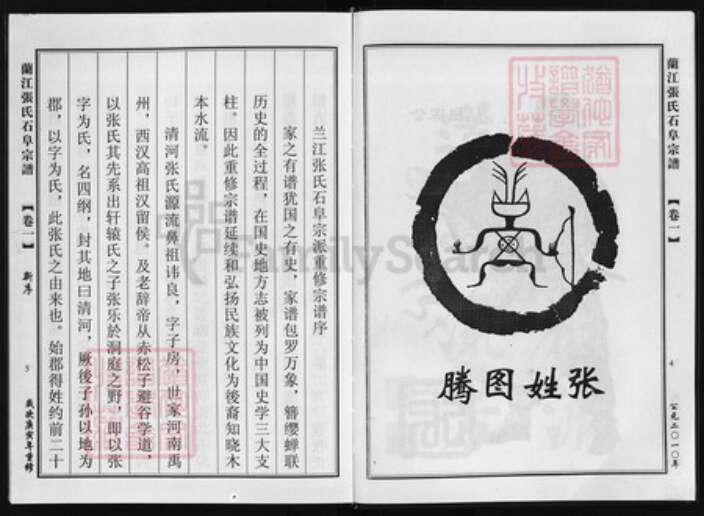 蘭江張氏石阜宗譜
【卷一】
4
公元二〇一〇年
张姓图腾
兰江张氏石阜宗派重修宗谱序
家之有谱犹国之有史，家谱包罗万象，簪缨蝉联
历史的全过程，在国史地方志被列为中国史学三大支
柱。因此重修宗谱延续和弘扬民族文化为後裔知晓木
本水流。
清河张氏源流鼻祖讳良，字子房，世家河南禹
州，西汉高祖汉留侯。及老辞帝从赤松子避谷学道，
以张氏其先系出轩辕氏之子张乐於洞庭之野，即以张
字为氏，名四纲，封其地曰清河，厥後子孙以地为
郡，以字为氏，此张氏之由来也。始郡得姓约前二十
蘭江張氏石阜宗譜
【卷一】
新序
5
歲次庚寅年重修
FamilySearch